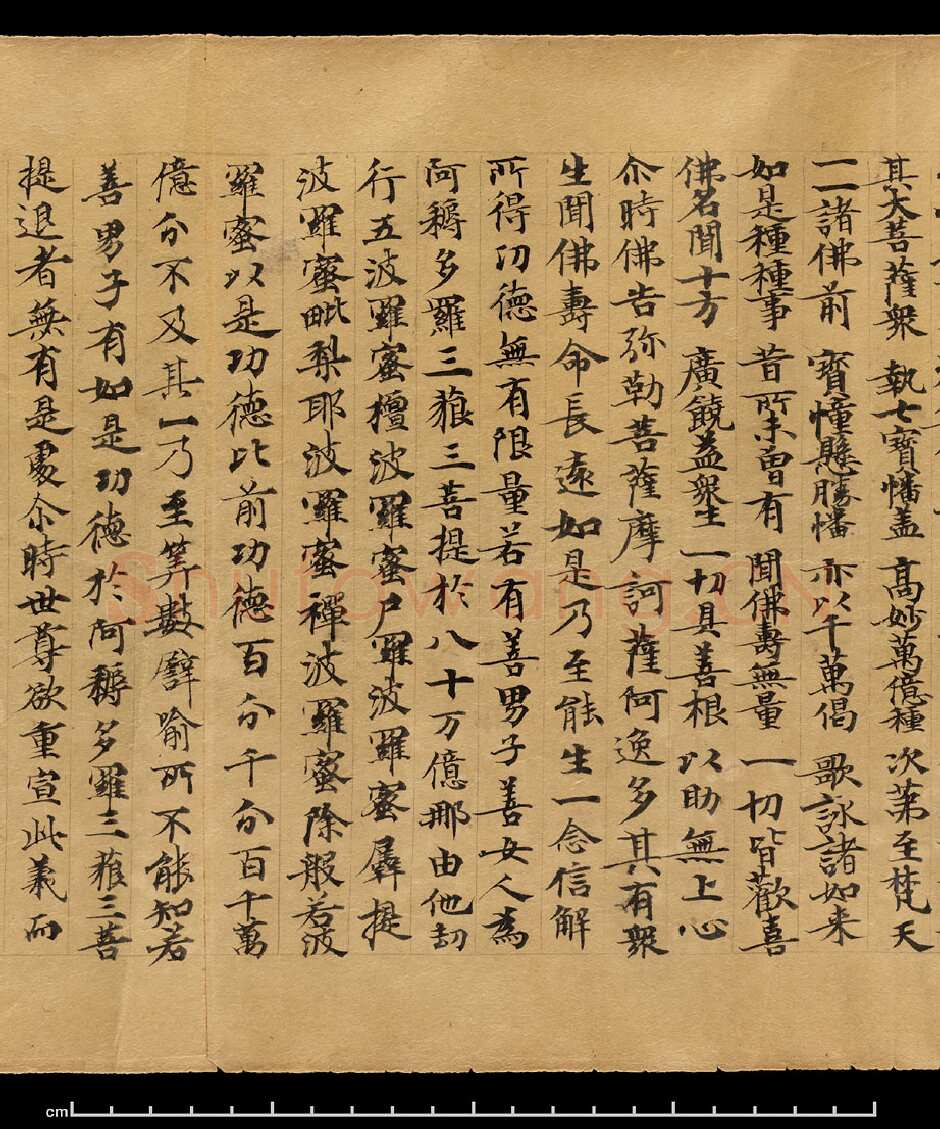 其大菩薩衆 執七寶幡盖 高妙萬億種 次苐至梵天
一一諸佛前 寶幢懸勝幡 亦以千萬偈 歌詠諸如来
如是種種事 昔所未曽有 聞佛壽無量 一切皆歡喜
佛名聞十方 廣饒益衆生 一切具善根 以助無上心
尒時佛告弥勒菩薩摩訶薩阿逸多其有衆
生聞佛壽命長遠如是乃至能生一念信解
所得功德無有限量若有善男子善女人為
阿耨多羅三藐三菩提於八十万億那由他劫
行五波羅蜜檀波羅蜜尸羅波羅蜜羼提
波羅蜜毗梨耶波羅蜜禪波羅蜜除般若波
羅蜜以是功德比前功德百分千分百千萬
億分不及其一乃至筭數譬喻所不能知若
善男子有如是功德於阿耨多羅三藐三菩
提退者無有是處尒時世尊欲重宣此義而
Shufawang.CN
cm